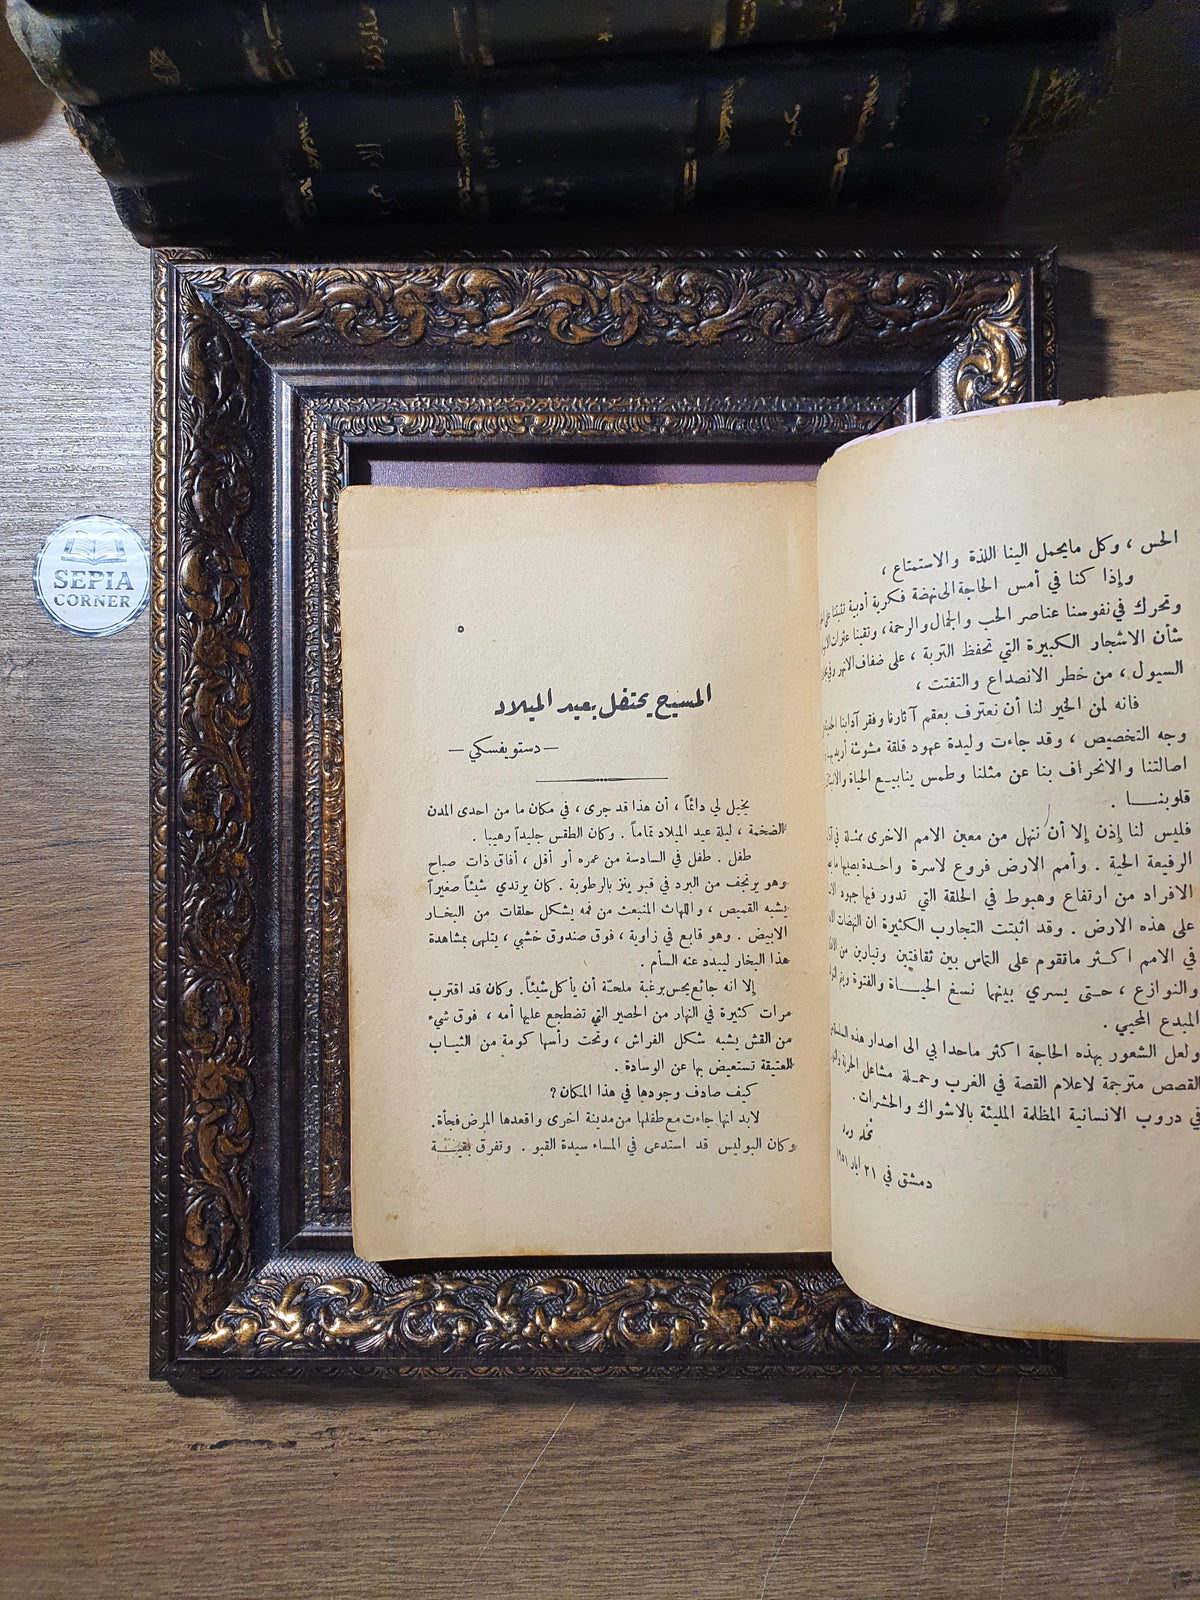 الحس ، وكل مايحمل الينا اللذة والاستمتاع ،
وإذا كنا في أمس الحاجة الى نهضة فكرية أدبية
وتحرك في نفوسنا عناصر الحب والجمال والرحمة ، وتقينا عثرات
شأن الاشجار الكبيرة التي تحفظ التربة ، على ضفاف الانهر
السيول ، من خطر الانصداع والتفتت ،
فانه لمن الخير لنا أن نعترف بعقم آثارنا وفقر آدابنا
وجه التخصيص ، وقد جاءت وليدة عهود قلقة مشوشة
اصالتنا والانحراف بنا عن مثلنا وطمس ينابيع الحياة
قلوبنا .
فليس لنا إذن إلا أن ننهل من معين الامم الاخرى ممثلة في
الرفيعة الحية . وأمم الارض فروع لاسرة واحدة يصيبها
الافراد من ارتفاع وهبوط في الحلقة التي تدور فيها جهود
على هذه الارض . وقد اثبتت التجارب الكثيرة ان النهضات
في الامم اكثر ماتقوم على التماس بين ثقافتين وتيارين من
والنوازع ، حتى يسري بينهما نسغ الحياة والفتوة
المبدع المحيي .
ولعل الشعور بهذه الحاجة اكثر ماحدا بي الى اصدار هذه
القصص مترجمة لاعلام القصة في الغرب وحملة مشاعل الحرية
في دروب الانسانية المظلمة المليئة بالاشواك والحشرات .
دمشق في ٢١ ايار ١٩٥١
٥
المسيح يحتفل بعيد الميلاد
— دستويفسكي —
يخيل لي دائماً ، أن هذا قد جرى ، في مكان ما من احدى المدن
الضخمة ، ليلة عيد الميلاد تماماً . وكان الطقس جليداً رهيبا .
طفل . طفل في السادسة من عمره أو أقل ، أفاق ذات صباح
وهو يرتجف من البرد في قبو ينز بالرطوبة . كان يرتدي شيئاً صغيراً
يشبه القميص ، واللهاث المنبعث من فمه يشكل حلقات من البخار
الابيض . وهو قابع في زاوية ، فوق صندوق خشبي ، يتلهى بمشاهدة
هذا البخار ليبدد عنه السأم .
إلا انه جائع يحس برغبة ملحّة أن يأكل شيئاً . وكان قد اقترب
مرات كثيرة في النهار من الحصير التي تضطجع عليها أمه ، فوق شيء
من القش يشبه شكل الفراش ، وتحت رأسها كومة من الثياب
العتيقة تستعيض بها عن الوسادة .
كيف صادف وجودها في هذا المكان ؟
لابد انها جاءت مع طفلها من مدينة اخرى واقعدها المرض فجأة .
وكان البوليس قد استدعى في المساء سيدة القبو . وتفرق بقية
SEPIA
CORNER